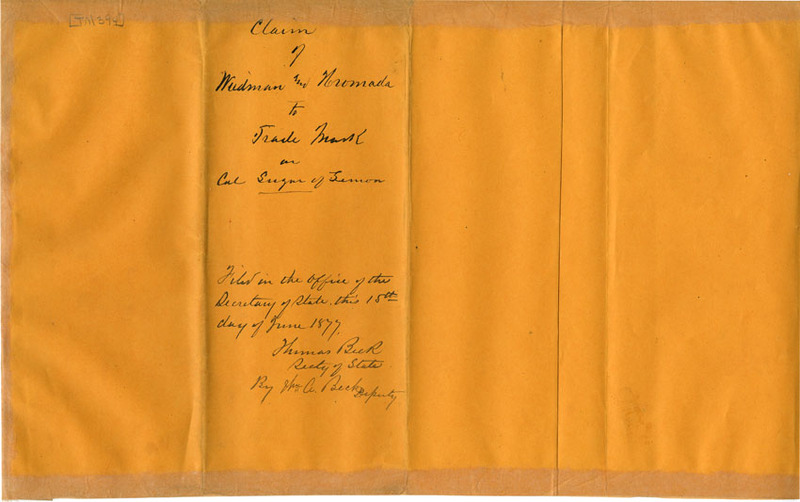 [TM394]
Claim
of
Wiedman and Hromada
to
Trade Mark
on
Cal Sugar of Lemon
Filed in the Office of the
Secretary of State this 15th
day of June 1877.
Thomas Beck
Secty of State
By Wm A. Beck
Deputy